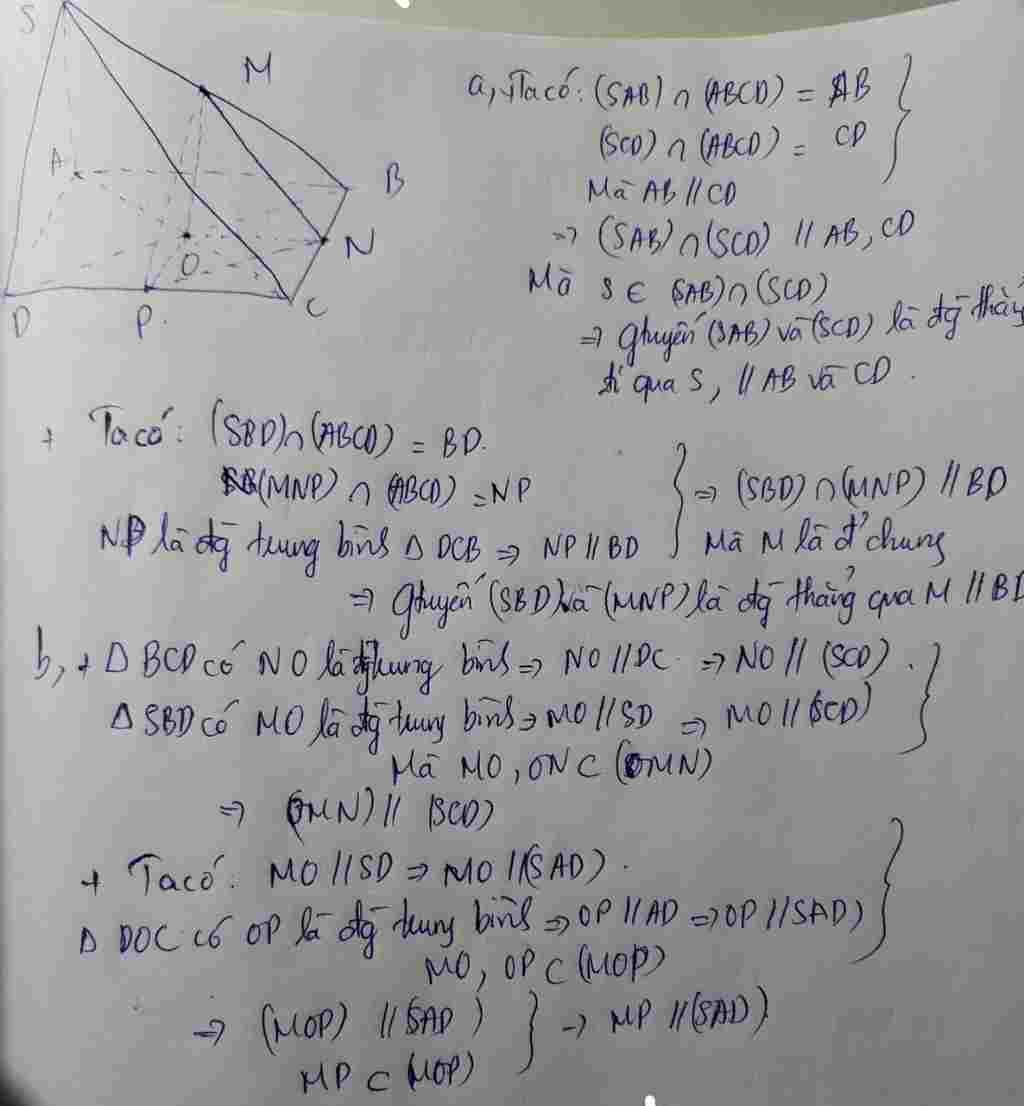 S
M
A
B
N
O
D
P
C
a, Ta có: (SAB) ∩ (ABCD) = AB
(SCD) ∩ (ABCD) = CD
Mà AB // CD
=> (SAB) ∩ (SCD) // AB, CD
Mà S ∈ (SAB) ∩ (SCD)
=> Gtuyến (SAB) và (SCD) là đg thẳng
đi qua S, // AB và CD.
+ Ta có: (SBD) ∩ (ABCD) = BD.
(MNP) ∩ (ABCD) = NP
NP là đg trung bình Δ DCB => NP // BD
=> (SBD) ∩ (MNP) // BD
Mà M là đ' chung
=> Gtuyến (SBD) và (MNP) là đg thẳng qua M // BD
b, + Δ BCD có NO là đg trung bình => NO // DC => NO // (SCD).
Δ SBD có MO là đg trung bình => MO // SD => MO // (SCD)
Mà MO, ON ⊂ (OMN)
=> (OMN) // (SCD)
+ Ta có: MO // SD => MO // (SAD).
Δ DOC có OP là đg trung bình => OP // AD => OP // SAD)
MO, OP ⊂ (MOP)
=> (MOP) // (SAD)
MP ⊂ (MOP)
=> MP // (SAD)